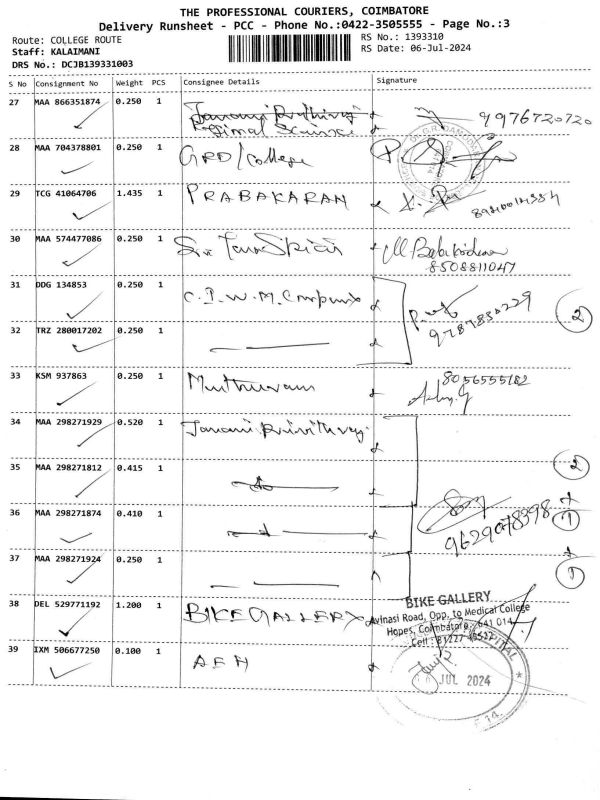 THE PROFESSIONAL COURIERS, COIMBATORE
Delivery Runsheet - PCC - Phone No.:0422-3505555 - Page No.:3
Route: COLLEGE ROUTE RS No.: 1393310
Staff: KALAIMANI RS Date: 06-Jul-2024
DRS No.: DCJB139331003
S No Consignment No Weight PCS Consignee Details Signature
27 MAA 866351874 0.250 1 9976720720
Regional Science
28 MAA 704378801 0.250 1 GRD/college
29 TCG 41064706 1.435 1 PRABAKARAN
30 MAA 574477086 0.250 1
8508811047
31 DDG 134853 0.250 1 C.I.W.M. 2
32 TRZ 280017202 0.250 1
33 KSM 937863 0.250 1 Muthuram 8056555182
34 MAA 298271929 0.520 1 Janani
35 MAA 298271812 0.415 1 2
36 MAA 298271874 0.410 1 9629078398 1
37 MAA 298271924 0.250 1 1
38 DEL 529771192 1.200 1 BIKE GALLERY
BIKE GALLERY
Avinasi Road, Opp. to Medical College
Hopes, Coimbatore - 641 014
Cell : 81227
39 IXM 506677250 0.100 1 AEH
JUL 2024